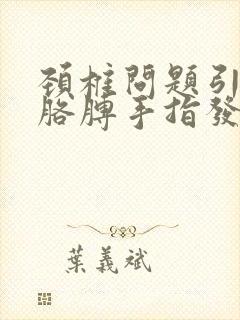 頸椎問題引
胳脾手指發
葉義斌